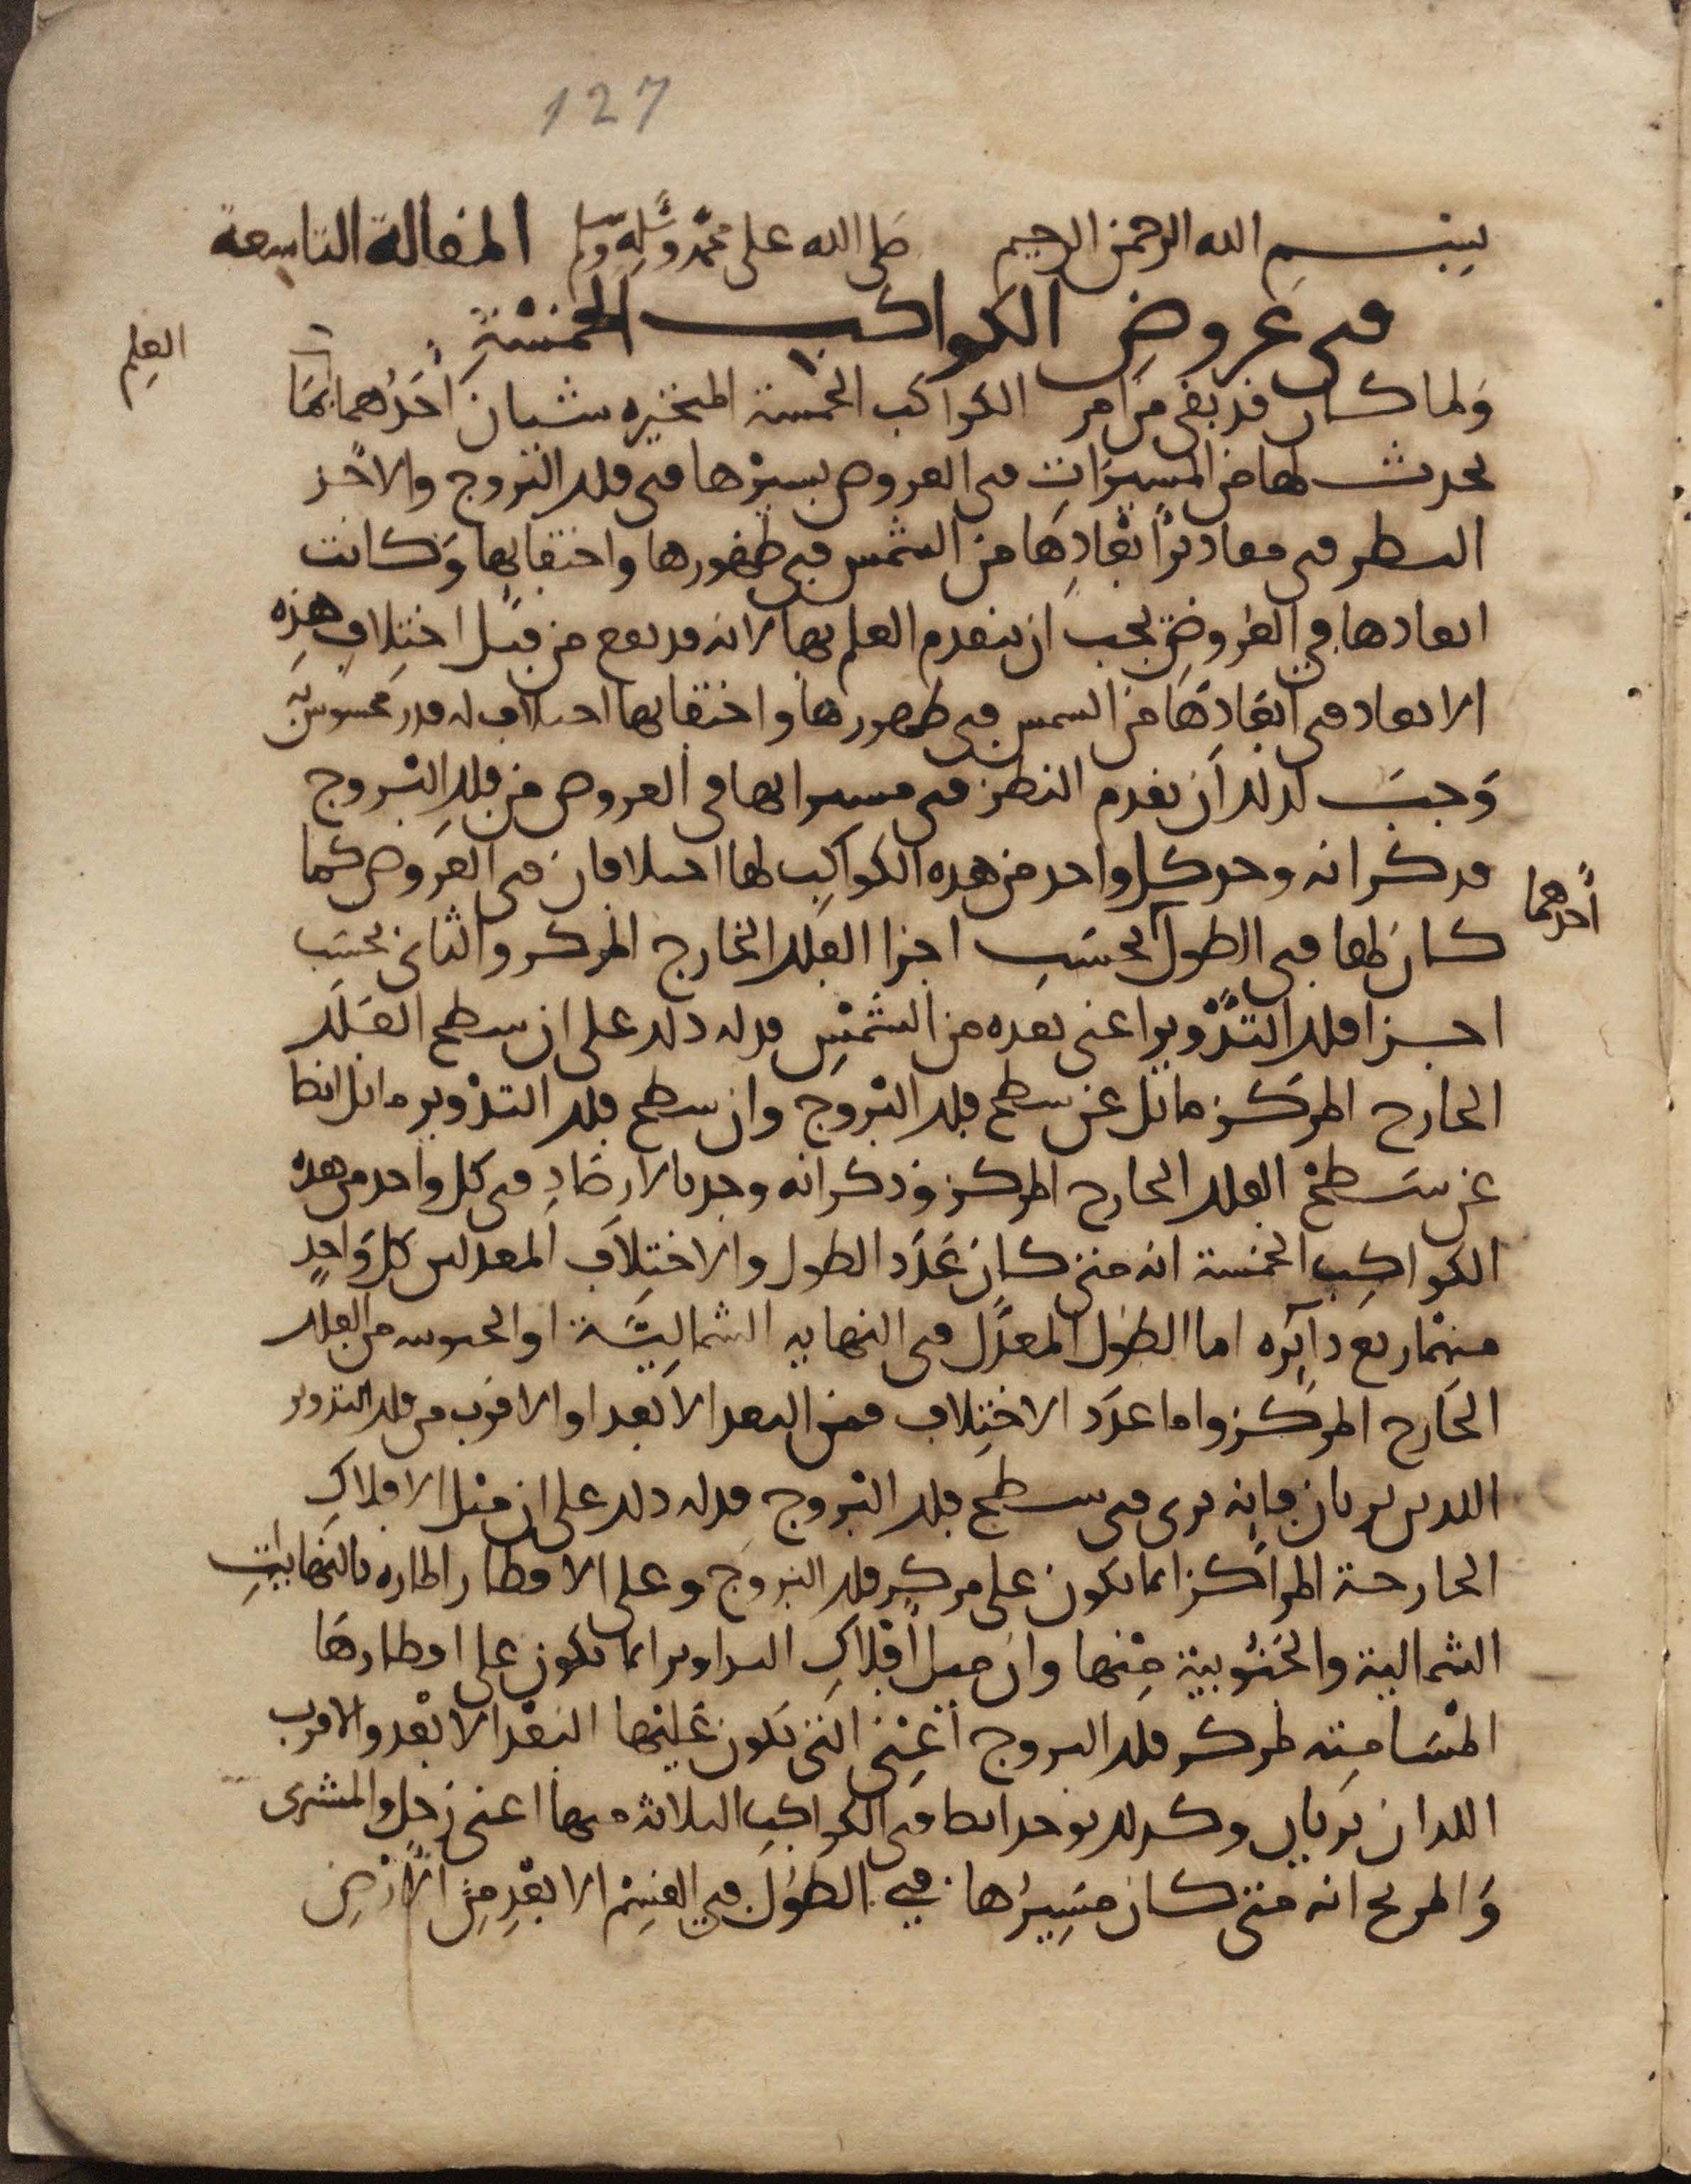 127
بسم الله الرحمن الرحيم صلى الله على محمد وآله وسلم المقالة التاسعة
في عروض الكواكب الخمسة
ولما كان قد بقي من امر الكواكب الخمسة المتحيره شيان احدهما بما
العلم
يحدث لها من المسيرات في العروض بسيرها في فلك البروج والاخر
النظر في مقادير ابعادها من الشمس في ظهورها واختفايها وكانت
ابعادها في العروض يجب ان يتقدم العلم بها لانه قد يقع من قبل اختلاف هذه
الابعاد في ابعادها من الشمس في ظهورها واختفايها اختلاف له قدر محسوس به
وجب لذلك ان نقدم النظر في مسيراتها في العروض من فلك البروج
فذكر انه وجد كل واحد من هذه الكواكب لها اختلافان في العروض كما
احدهما
كان لها في الطول بحسب اجزا الفلك الخارج المركز والثاني بحسب
اجزا فلك التدوير اعني بعده من الشمس فدله ذلك على ان سطح الفلك
الخارج المركز مائل عن سطح فلك البروج وان سطح فلك التدوير مائل ايضا
عن سطح الفلك الخارج المركز وذكر انه وجد بالارصاد في كل واحد من هذه
الكواكب الخمسة انه متى كان عدد الطول والاختلاف المعدلين كل واحد
منهما ربع دآئره اما الطول المعدل في النهايه الشمالية او الجنوبيه من الفلك
الخارج المركز واما عدد الاختلاف فمن البعد الابعد او الاقرب من فلك التدوير
اللذين يريان فانه يرى في سطح فلك البروج فدله ذلك على ان ميل الافلاك
الخارجة المراكز انما يكون على مركز فلك البروج وعلى الاقطار المارة بالنهايات
الشمالية والجنوبية منها وان ميل افلاك التداوير انما يكون على اقطارها
المسامتة لمركز فلك البروج اعني التي يكون عليها البعد الابعد والاقرب
اللذان يريان وكذلك يوجد ايضا في الكواكب الثلاثة منها اعني زحل والمشتري
والمريخ انه متى كان مسيرها في الطول في القسم الابعد من الارض